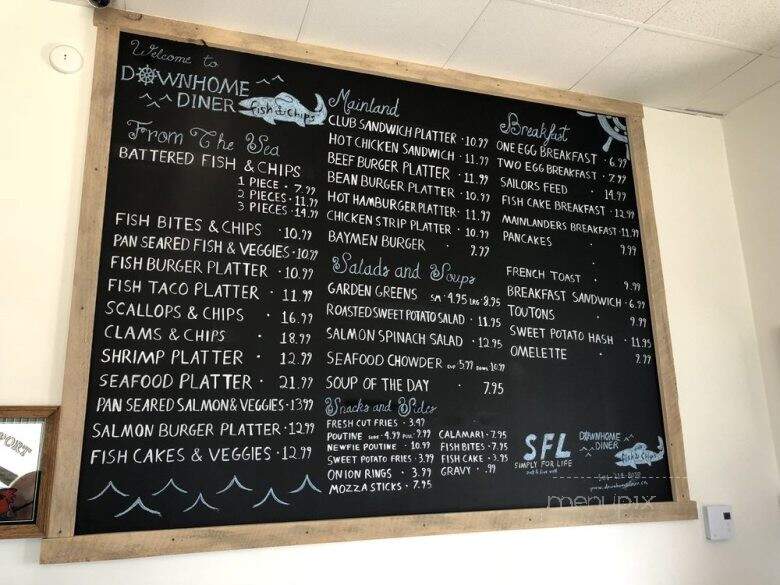 Welcome to
DOWNHOME
DINER
Fish & Chips
From The Sea
BATTERED FISH & CHIPS
1 PIECE • 7.99
2 PIECES • 11.99
3 PIECES • 14.99
FISH BITES & CHIPS • 10.99
PAN SEARED FISH & VEGGIES • 10.99
FISH BURGER PLATTER • 10.99
FISH TACO PLATTER • 11.99
SCALLOPS & CHIPS • 16.99
CLAMS & CHIPS • 18.99
SHRIMP PLATTER • 12.99
SEAFOOD PLATTER • 21.99
PAN SEARED SALMON & VEGGIES • 13.99
SALMON BURGER PLATTER • 12.99
FISH CAKES & VEGGIES • 12.99
Mainland
CLUB SANDWICH PLATTER • 10.99
HOT CHICKEN SANDWICH • 11.99
BEEF BURGER PLATTER • 11.99
BEAN BURGER PLATTER • 10.99
HOT HAMBURGER PLATTER • 11.99
CHICKEN STRIP PLATTER • 10.99
BAYMEN BURGER • 9.99
Salads and Soups
GARDEN GREENS SM • 4.95 LRG • 8.95
ROASTED SWEET POTATO SALAD • 11.95
SALMON SPINACH SALAD • 12.95
SEAFOOD CHOWDER CUP 5.99 BOWL 10.99
SOUP OF THE DAY • 7.95
Snacks and Sides
FRESH CUT FRIES • 3.49
POUTINE SIDE • 4.99 FULL • 9.99
NEWFIE POUTINE • 10.99
SWEET POTATO FRIES • 3.99
ONION RINGS • 3.99
MOZZA STICKS • 7.95
CALAMARI • 7.95
FISH BITES • 7.95
FISH CAKE • 3.95
GRAVY • .99
Breakfast
ONE EGG BREAKFAST • 6.99
TWO EGG BREAKFAST • 7.99
SAILORS FEED • 14.99
FISH CAKE BREAKFAST • 12.99
MAINLANDERS BREAKFAST • 11.99
PANCAKES • 9.99
FRENCH TOAST • 9.99
BREAKFAST SANDWICH • 6.99
TOUTONS • 9.99
SWEET POTATO HASH • 11.95
OMELETTE • 9.99
SFL
SIMPLY FOR LIFE
eat & live well
DOWNHOME
DINER
Fish & Chips
www.downhomediner.ca
menupix
PORT